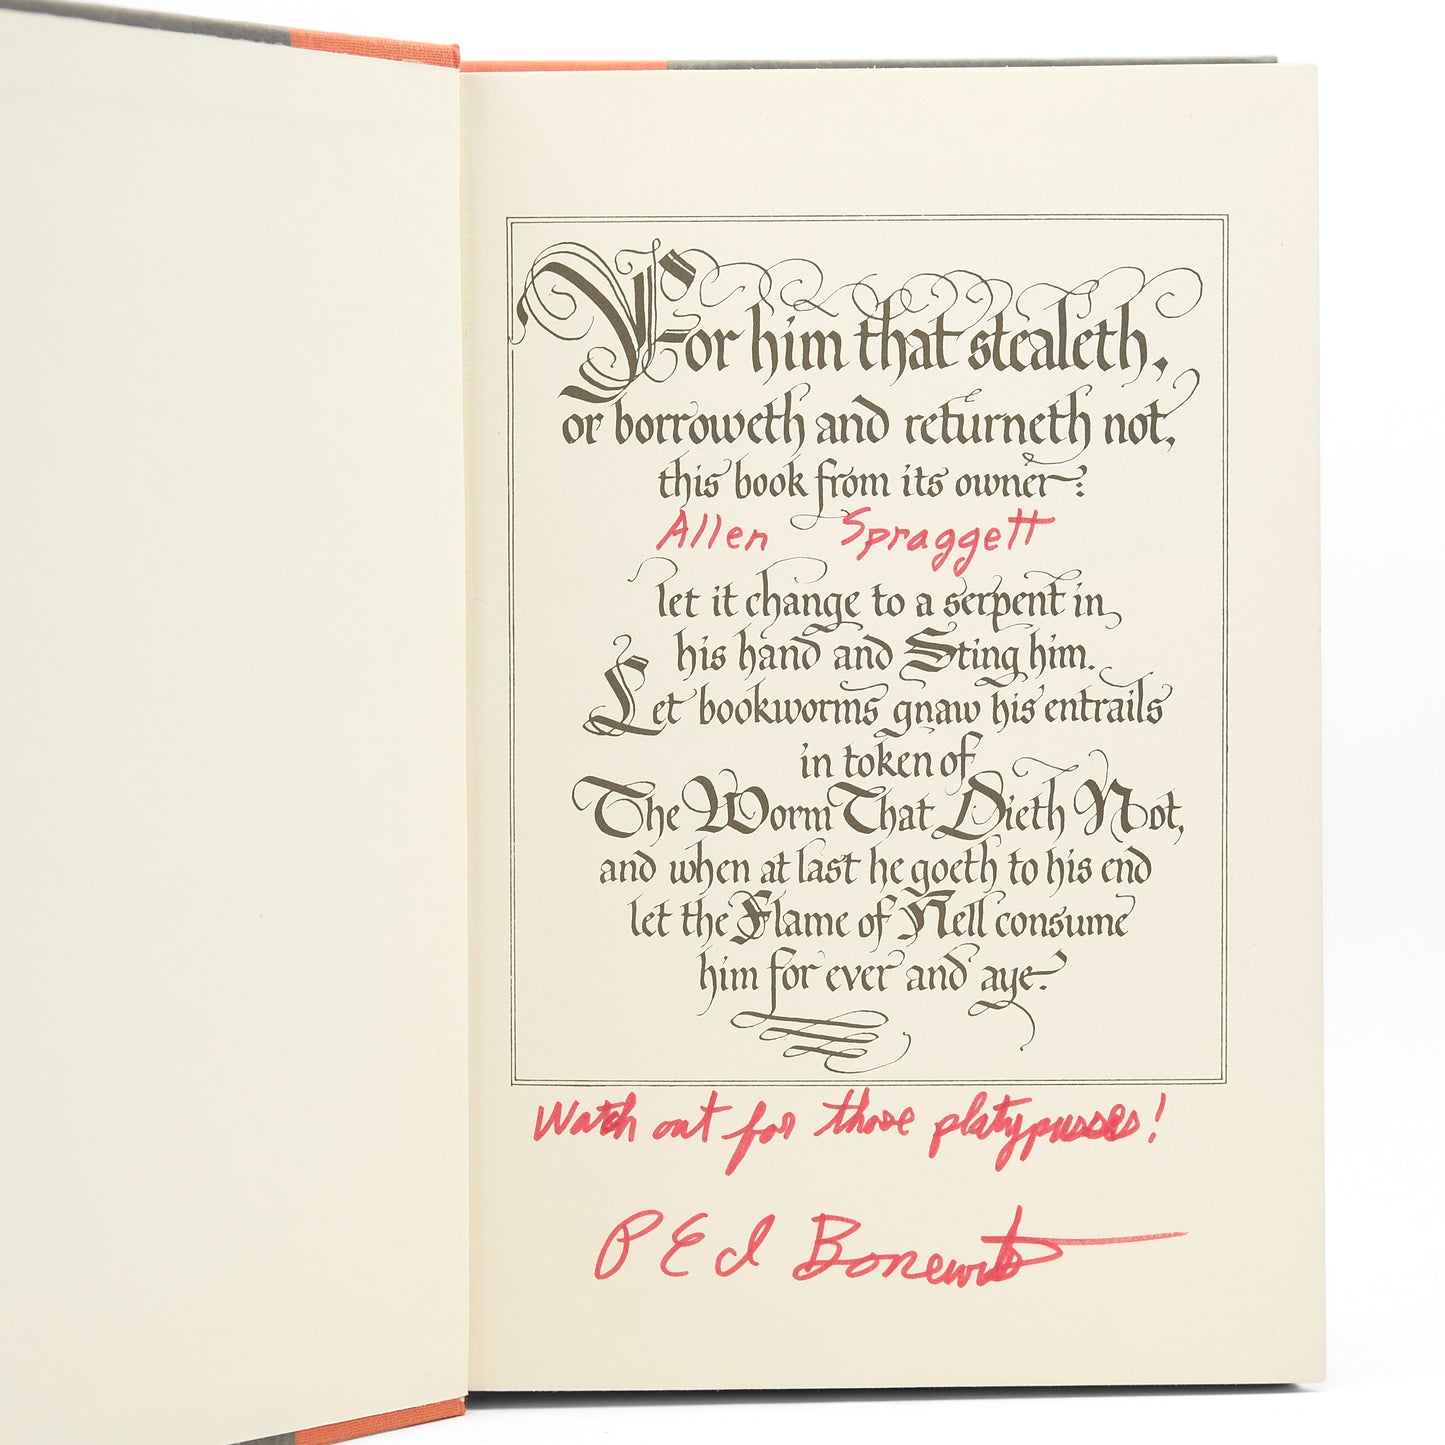 For him that stealeth,
or borroweth and returneth not,
this book from its owner:
Allen Spraggett
let it change to a serpent in
his hand and Sting him.
Let bookworms gnaw his entrails
in token of
The Worm That Dieth Not,
and when at last he goeth to his end
let the Flame of Hell consume
him for ever and aye.
Watch out for those platypusses!
P E I Bonewits